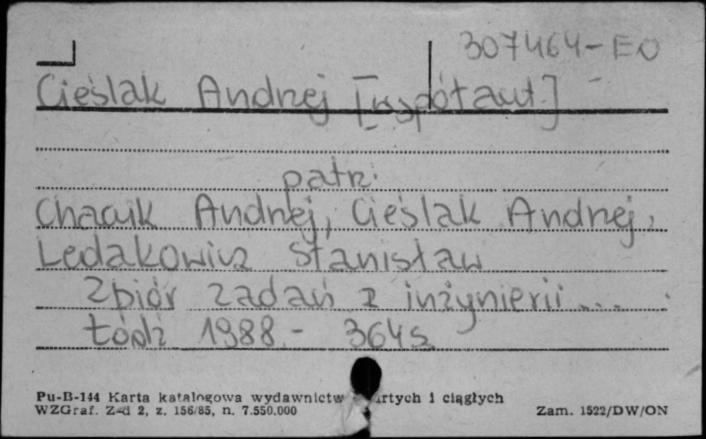 307464-EO
Cieślak Andrzej [współaut]
patrz:
Chacuk Andrzej, Cieślak Andrzej,
Ledakowicz Stanisław
Zbiór zadań z inżynierii...
Łódź 1988.- 364 s.
Pu-B-144 Karta katalogowa wydawnictw i ciągłych
WZGraf. Z-d 2, z. 156/85, n. 7.550.000
Zam. 1522/DW/ON